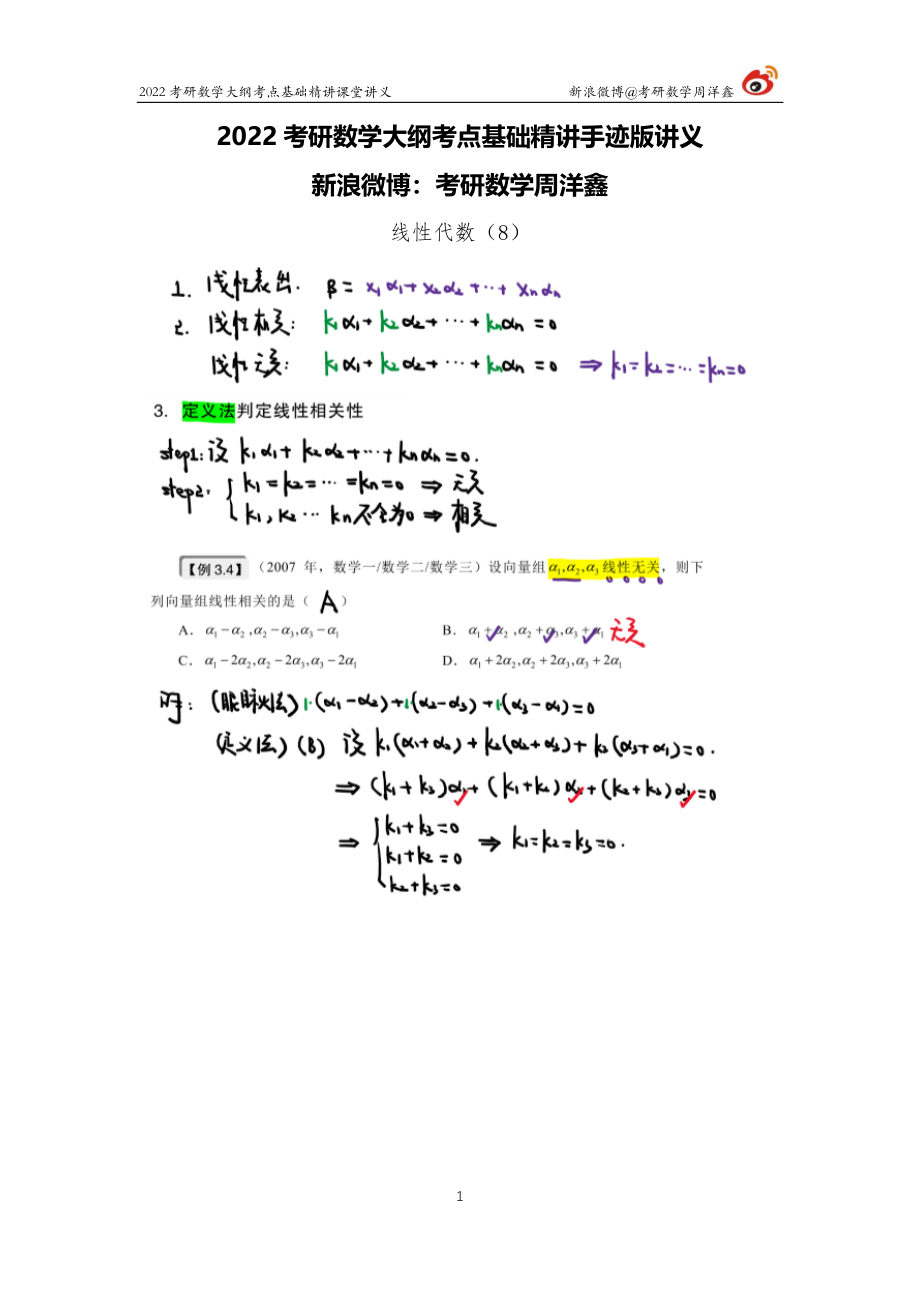 2022考研数学大纲考点基础精讲课堂讲义 新浪微博@考研数学周洋鑫
2022考研数学大纲考点基础精讲手迹版讲义
新浪微博：考研数学周洋鑫
线性代数（8）
1. 线性表出. β = x₁α₁+x₂α₂+⋯+xₙαₙ
2. 线性相关: k₁α₁+k₂α₂+⋯+kₙαₙ=0
线性无关: k₁α₁+k₂α₂+⋯+kₙαₙ=0 ⇒ k₁=k₂=⋯=kₙ=0
3. 定义法判定线性相关性
step1: 设 k₁α₁+k₂α₂+⋯+kₙαₙ=0.
step2. { k₁=k₂=⋯=kₙ=0 ⇒ 无关
k₁,k₂⋯kₙ不全为0 ⇒ 相关
【例 3.4】（2007 年，数学一/数学二/数学三）设向量组α₁,α₂,α₃线性无关，则下
列向量组线性相关的是（ A ）
A. α₁−α₂,α₂−α₃,α₃−α₁ B. α₁+α₂,α₂+α₃,α₃+α₁ 无关
C. α₁−2α₂,α₂−2α₃,α₃−2α₁ D. α₁+2α₂,α₂+2α₃,α₃+2α₁
(眼脉火法) 1·(α₁−α₂)+1·(α₂−α₃)+1·(α₃−α₁)=0
(定义法) (B) 设 k₁(α₁+α₂)+k₂(α₂+α₃)+k₃(α₃+α₁)=0.
⇒ (k₁+k₃)α₁+(k₁+k₂)α₂+(k₂+k₃)α₃=0
⇒ { k₁+k₃=0
k₁+k₂=0 ⇒ k₁=k₂=k₃=0.
k₂+k₃=0
1